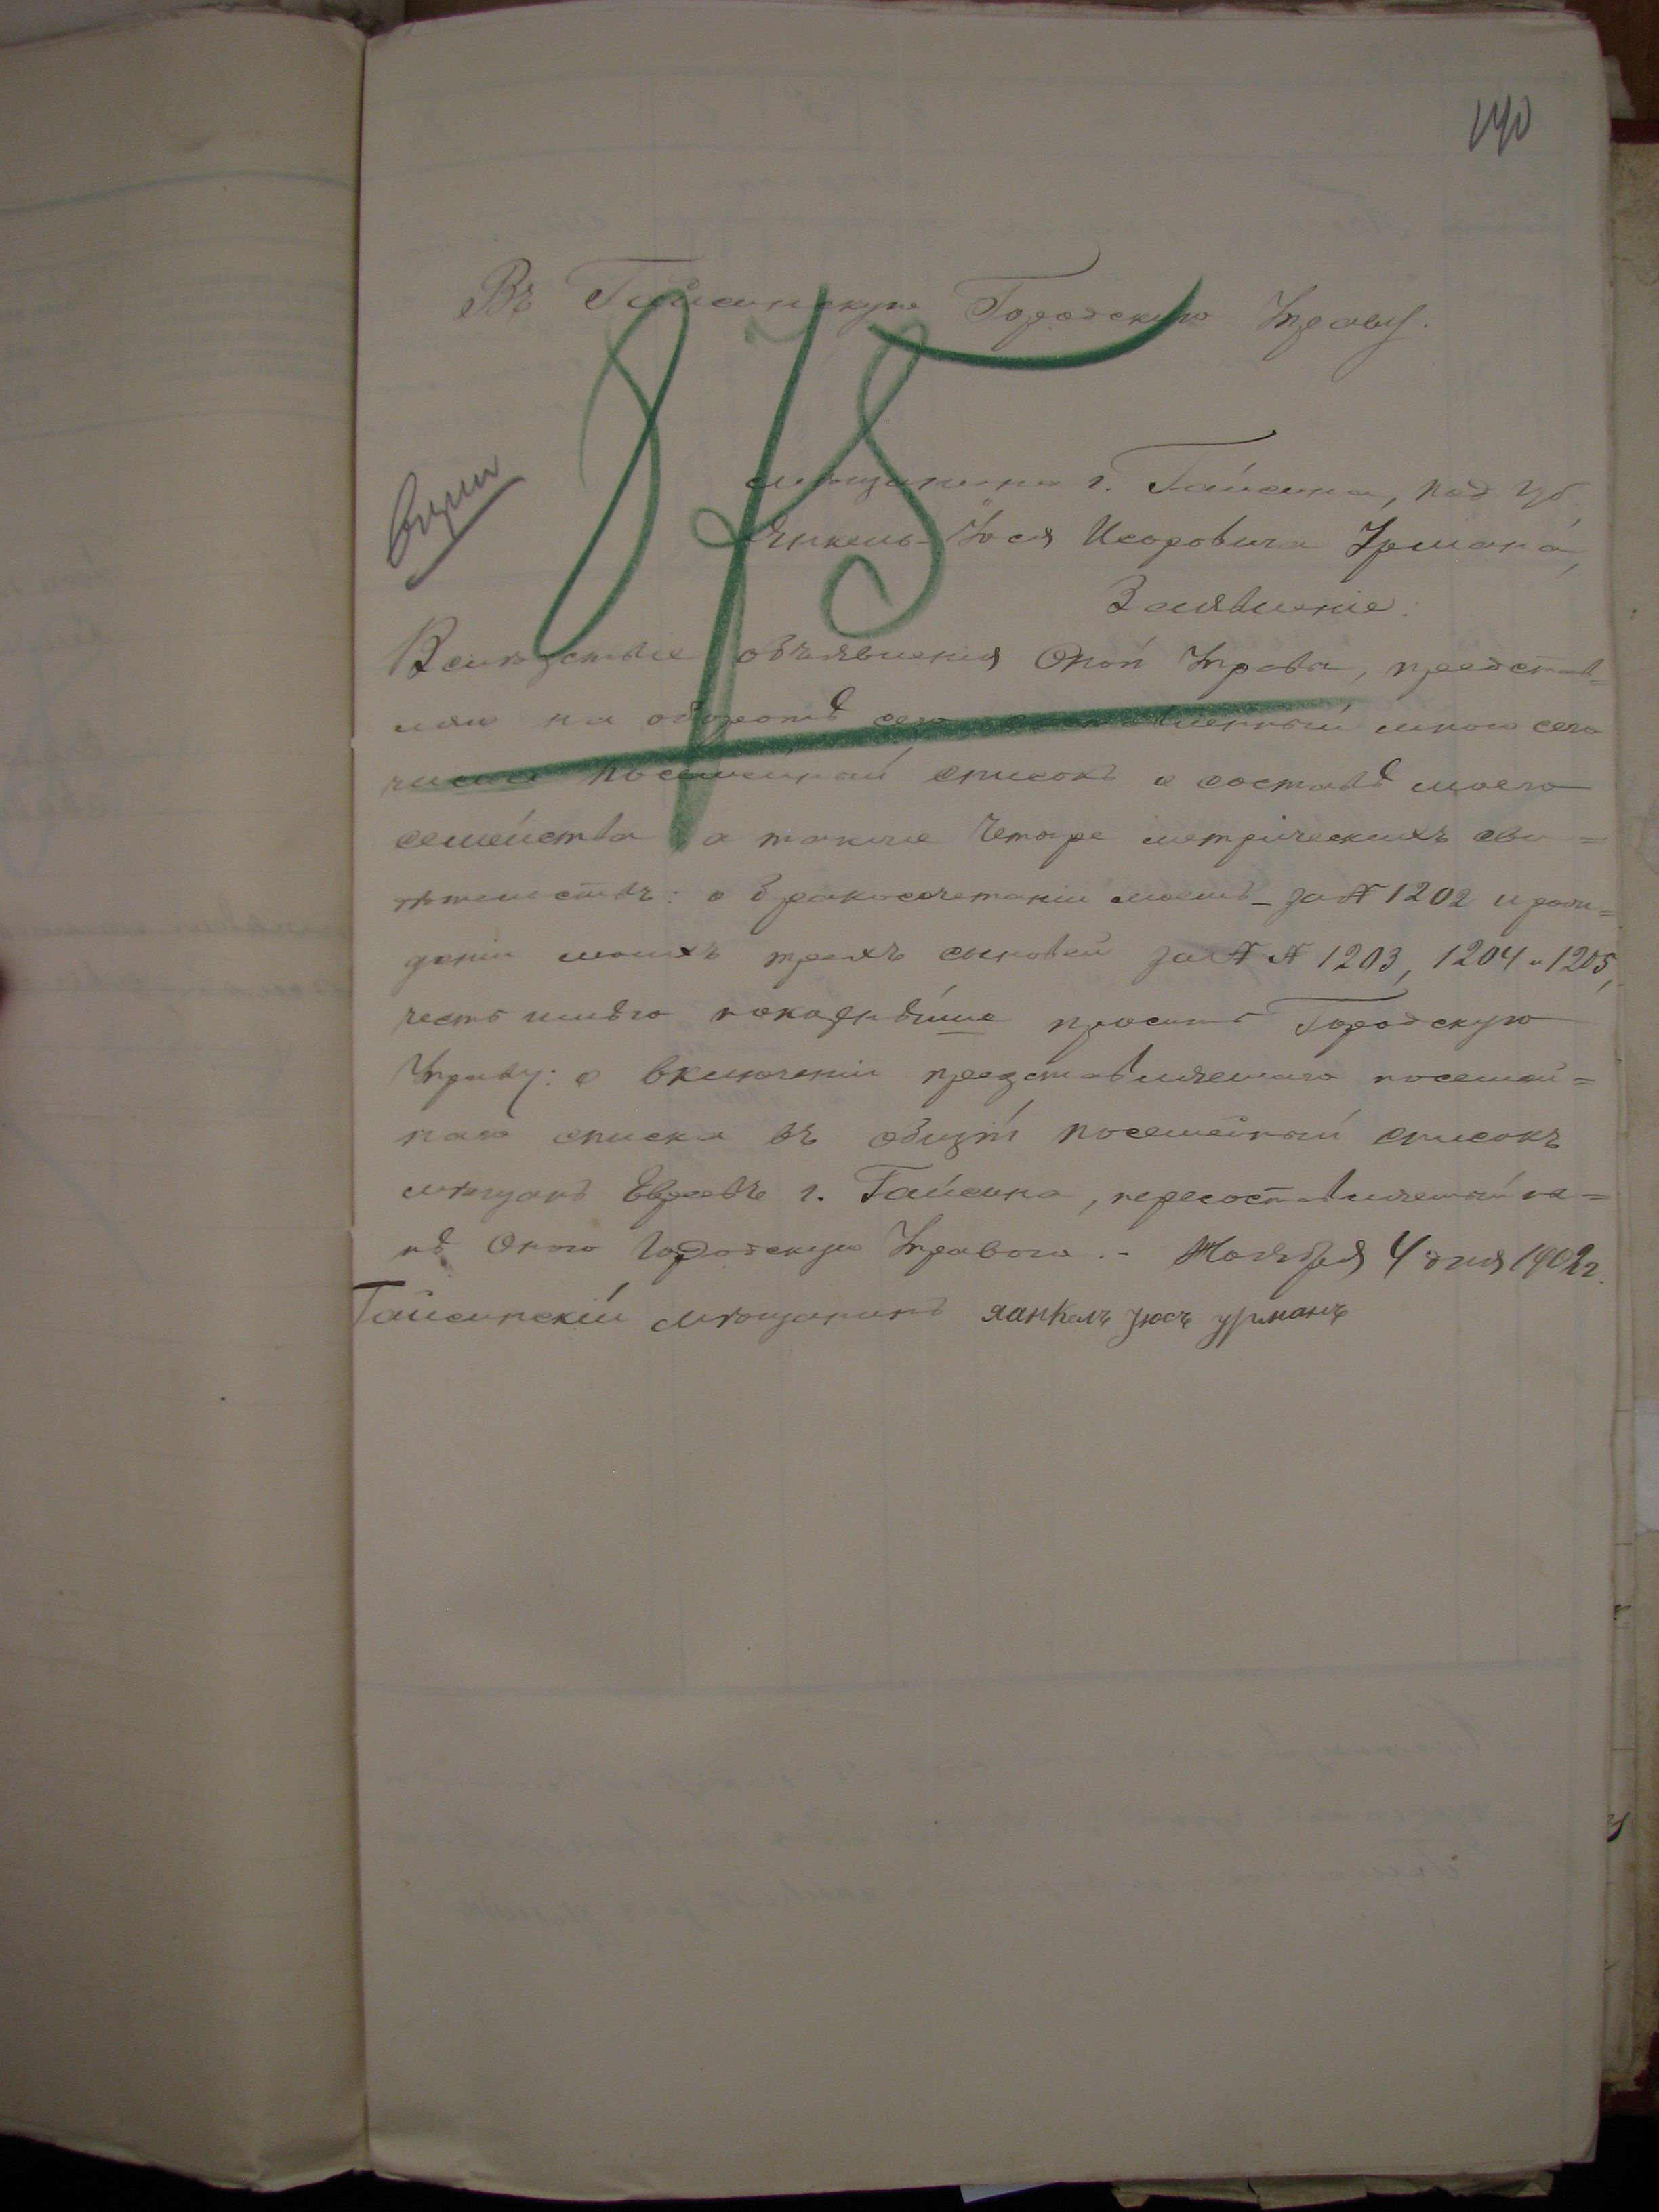 190
Въ Гайсинскую Городскую Управу.
975
мѣщанина г. Гайсина, под. губ.
Янкель-Іося Исоровича Урмана,
Заявленіе.
Вслѣдствіе объявленія Оной Управы, представ=
ляю на оборотѣ сего составленный мною сего
числа посемейный списокъ о составѣ моего
семейства а также четыре метрическихъ сви=
дѣтельствъ: о бракосочетаніи моемъ – за № 1202 и рож=
деніи моихъ трехъ сыновей за №№ 1203, 1204 и 1205,
честь имѣю покорнѣйше просить Городскую
Управу: о включеніи представляемаго посемей=
наго списка въ общій посемейный списокъ
мѣщанъ Евреевъ г. Гайсина, пересоставляемый
Оного Городскую Управою. – Ноября 4 дня 1902 г.
Гайсинскій мѣщанинъ янкелъ Урманъ